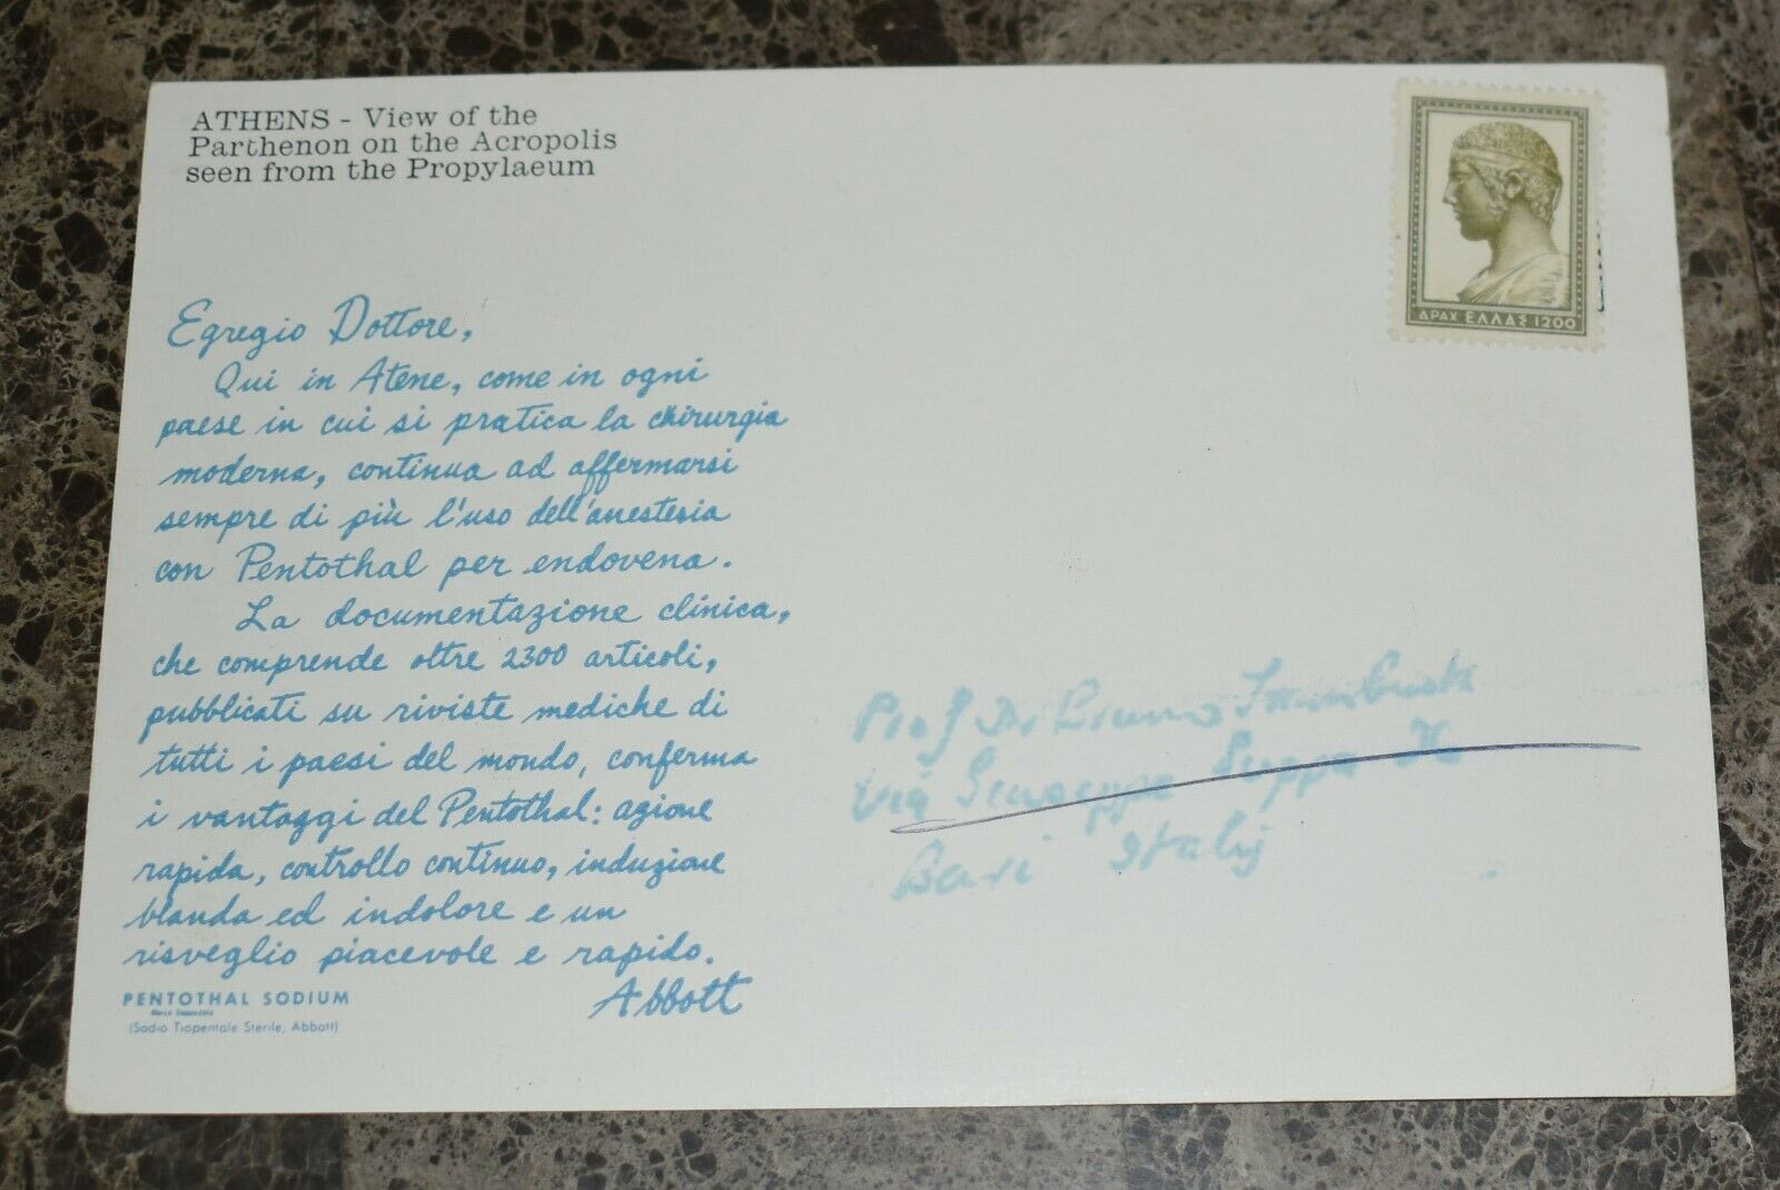 ATHENS - View of the
Parthenon on the Acropolis
seen from the Propylaeum
ΔΡΑΧ ΕΛΛΑΣ 1200
Egregio Dottore,
Qui in Atene, come in ogni
paese in cui si pratica la chirurgia
moderna, continua ad affermarsi
sempre di più l'uso dell'anestesia
con Pentothal per endovena.
La documentazione clinica,
che comprende oltre 2300 articoli,
pubblicati su riviste mediche di
tutti i paesi del mondo, conferma
i vantaggi del Pentothal: azione
rapida, controllo continuo, induzione
blanda ed indolore e un
risveglio piacevole e rapido.
Abbott
PENTOTHAL SODIUM
(Sodio Tiopentale Sterile, Abbott)
Prof Dr
Via
Bari Italy